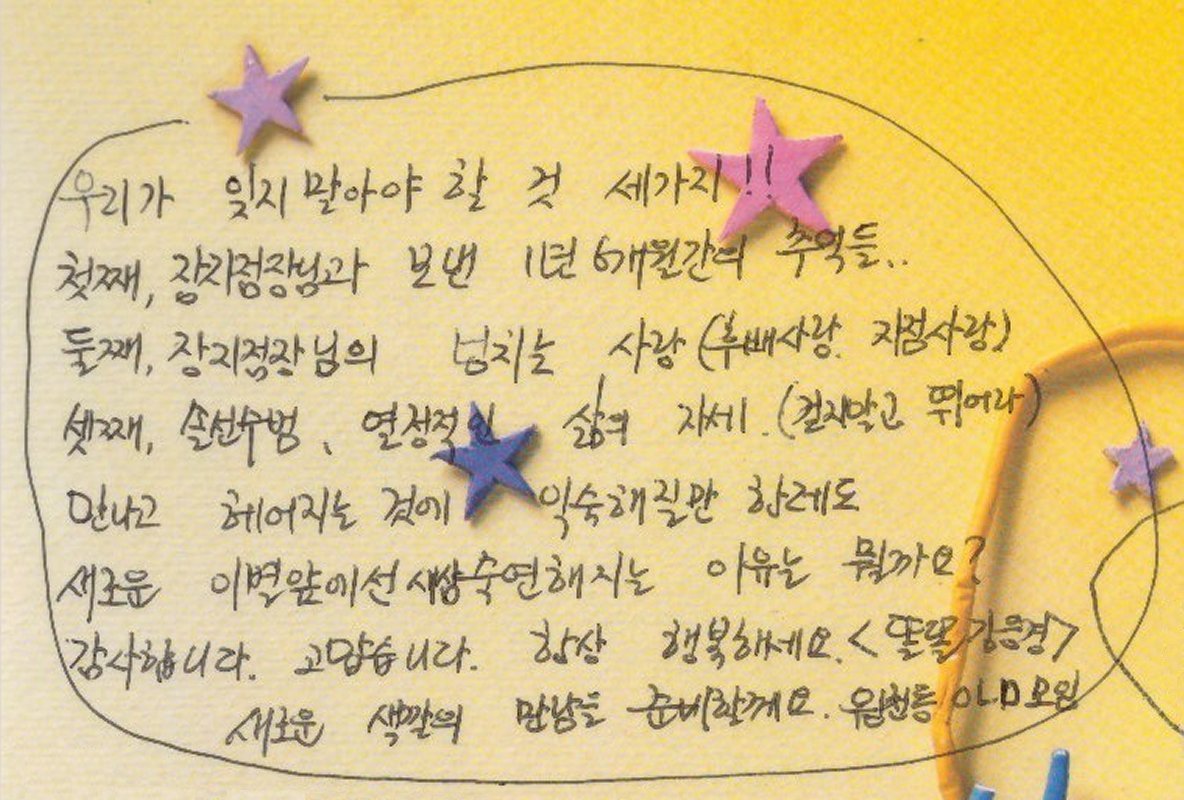 우리가 잊지 말아야 할 것 세가지!!
첫째, 장지점장님과 보낸 1년 6개월간의 추억들..
둘째, 장지점장님의 넘치는 사랑 (후배사랑. 지점사랑)
셋째, 솔선수범, 열정적인 삶의 자세. (걷지말고 뛰어라)
만나고 헤어지는 것에 익숙해질만 한레도
새로운 이별앞에선 새삼숙연해지는 이유는 뭘까요?
감사합니다. 고맙습니다. 항상 행복하세요. <똘똘 강은경>
새로운 색깔의 만남을 준비할께요. 원천동 모임